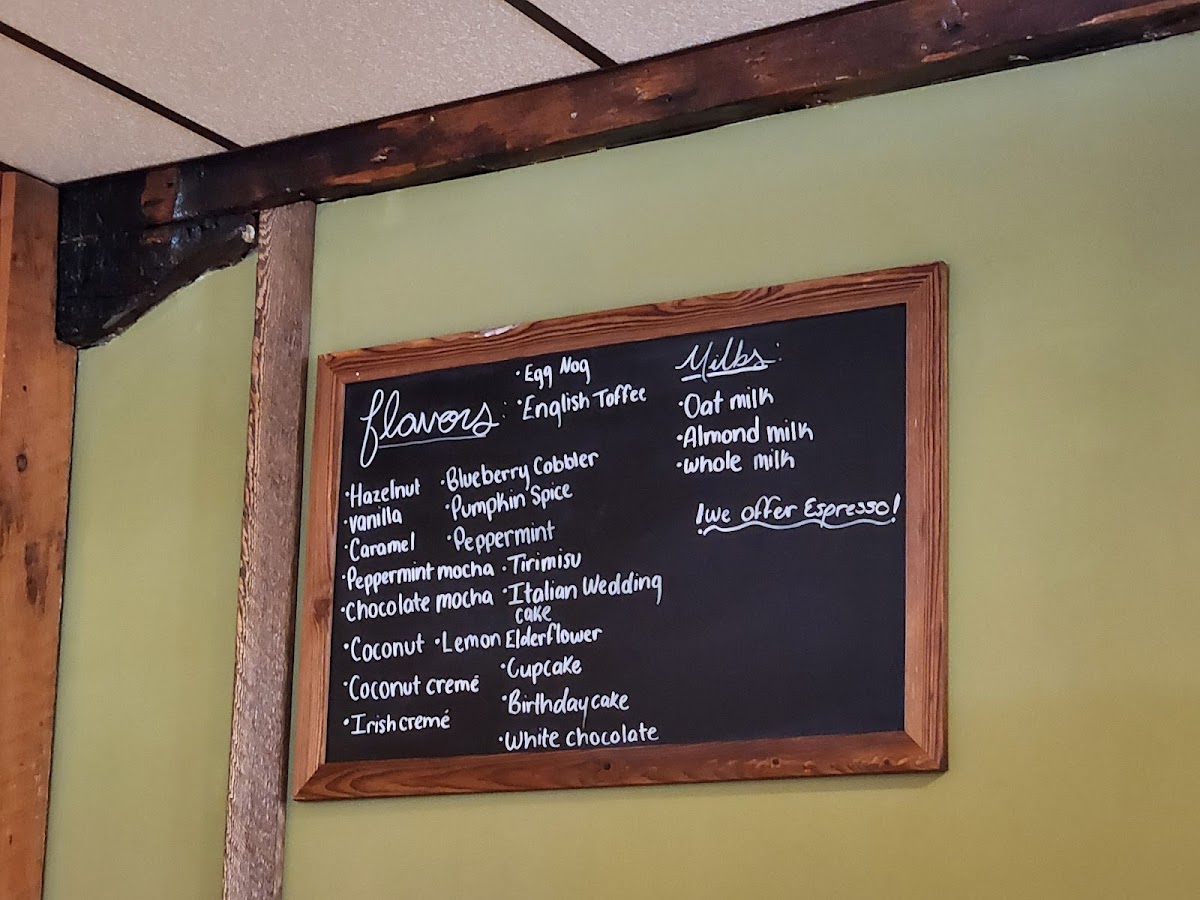 flavors:
·Egg Nog
·English Toffee
·Hazelnut
·vanilla
·Caramel
·Peppermint mocha
·Chocolate mocha
·Coconut
·Coconut cremé
·Irish cremé
·Blueberry Cobbler
·Pumpkin Spice
·Peppermint
·Tirimisu
·Italian Wedding
cake
·Lemon Elderflower
·Cupcake
·Birthday cake
·White chocolate
Milks:
·Oat milk
·Almond milk
·whole milk
!we offer Espresso!